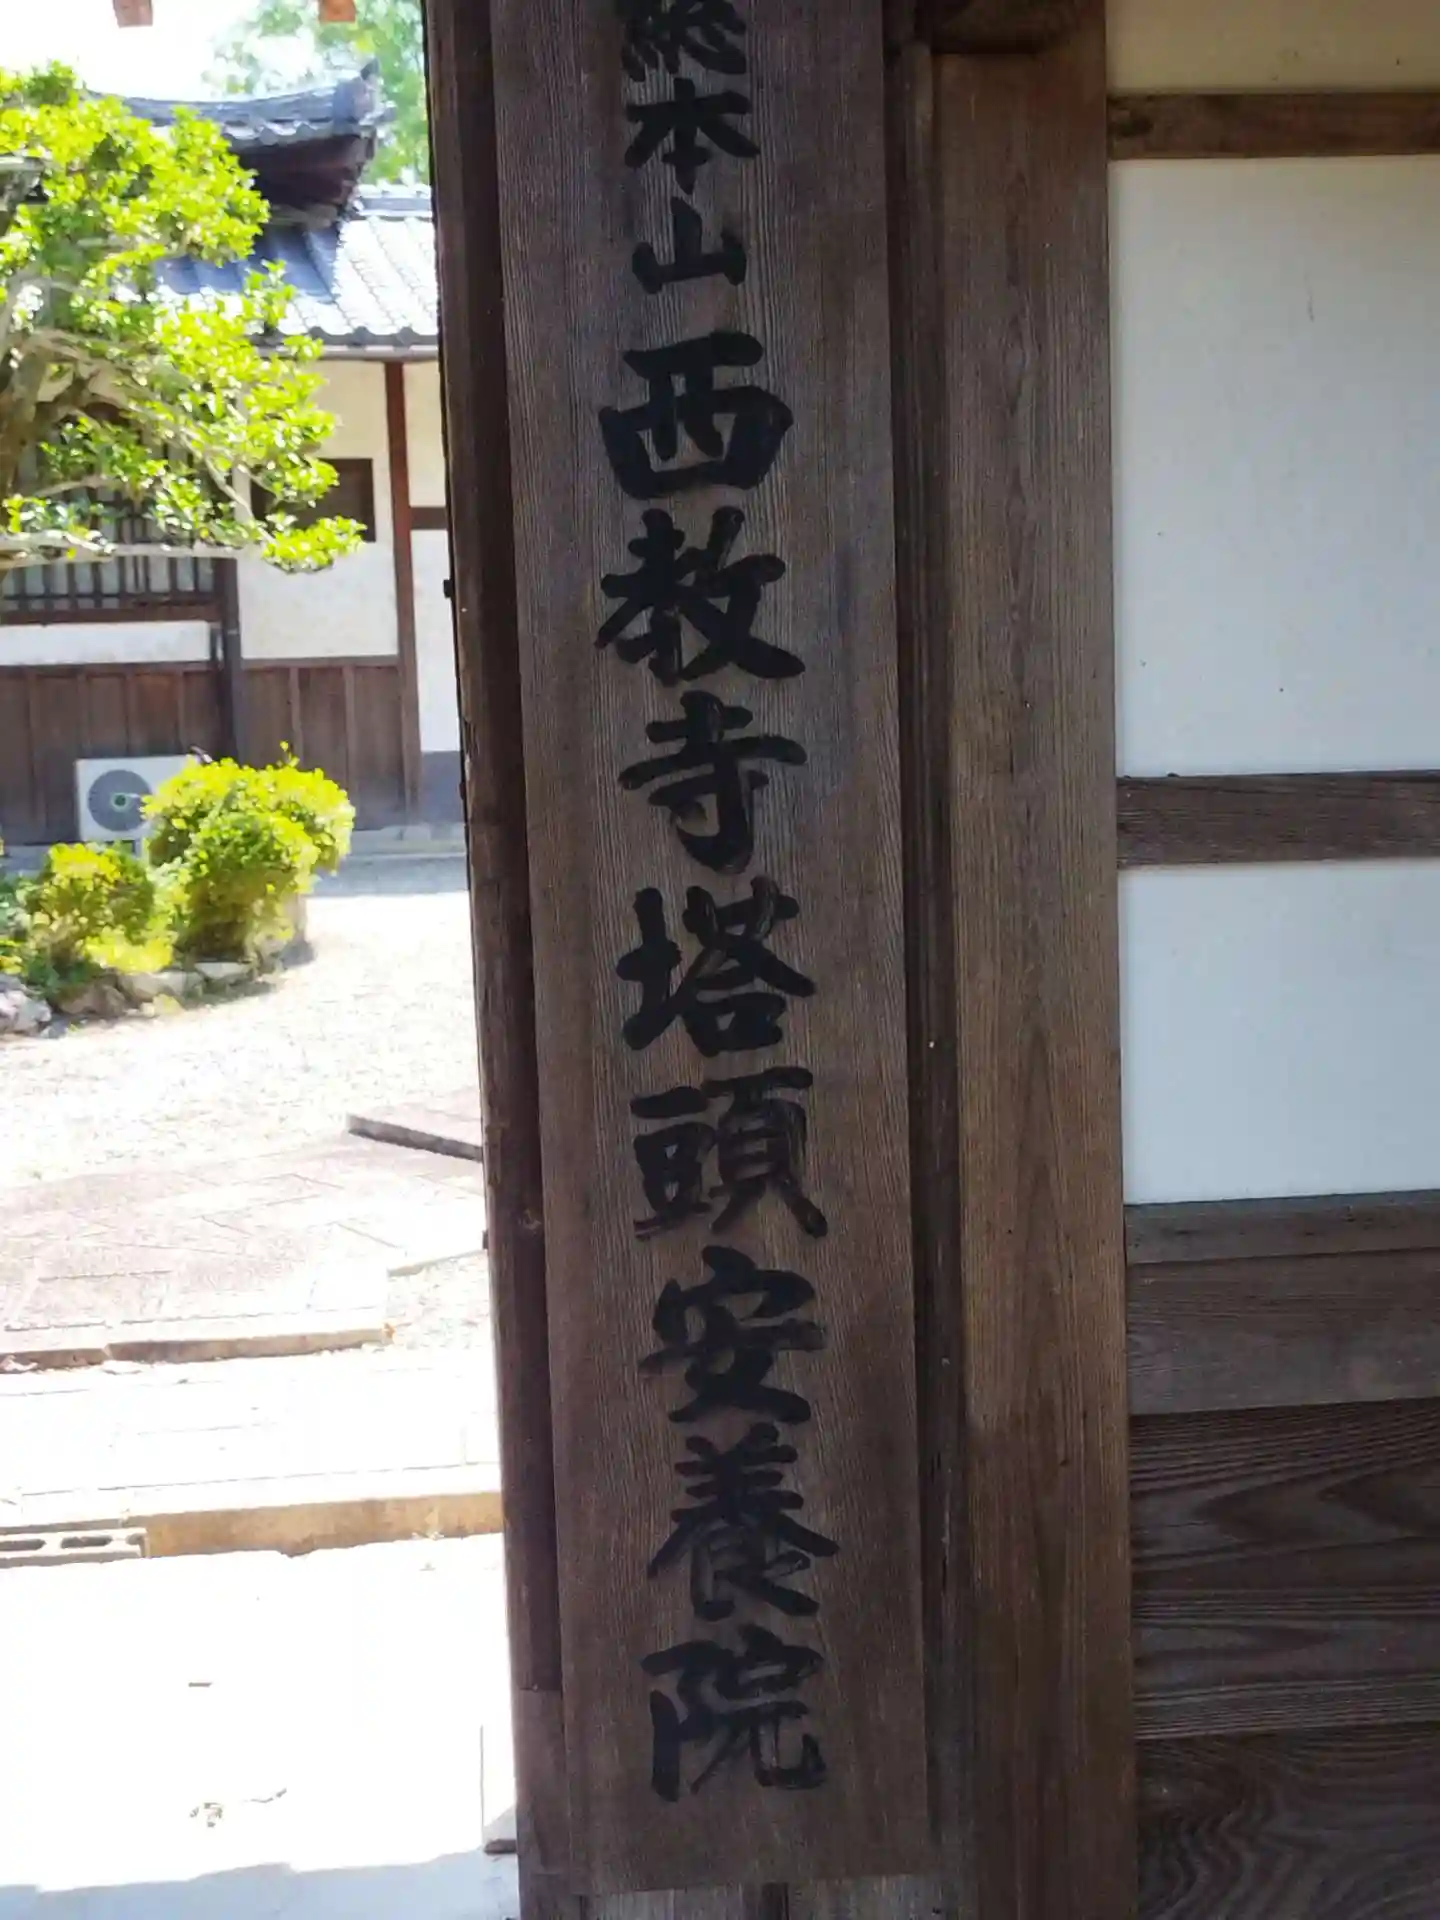 総本山西教寺塔頭安養院